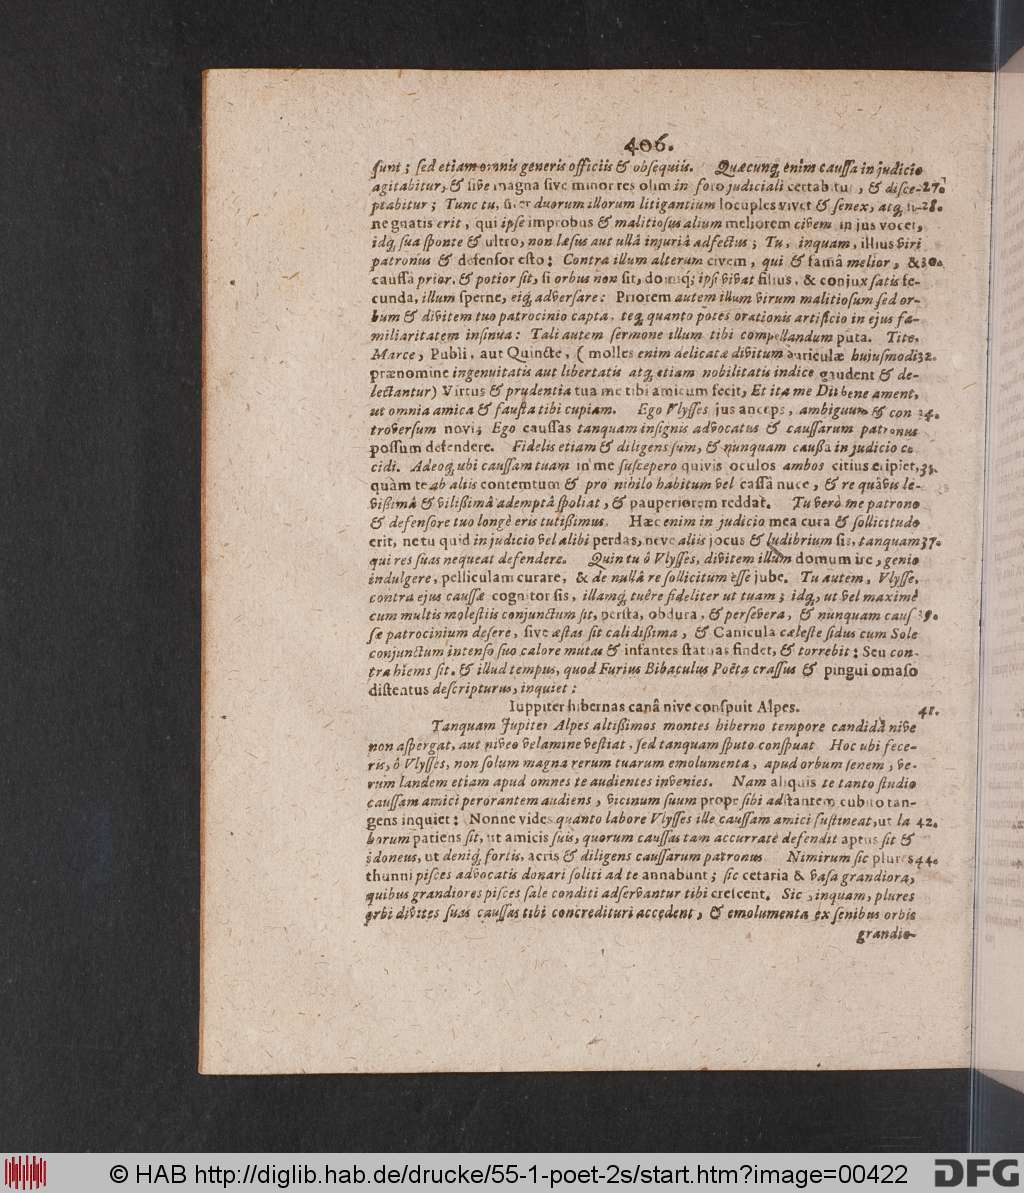 406.
ſunt; ſed etiam omnis generis officiis & obſequiis. Quæcunq; enim cauſſa in judicio
agitabitur, & ſive magna ſive minor res olim in foro judiciali certabitur, & diſce- 27.
ptabitur; Tunc tu, ſi er duorum illorum litigantium locuples vivet & ſenex, atq; li- 28.
ne gnatis erit, qui ipſe improbus & malitioſus alium meliorem civem in jus vocet,
idq; ſua ſponte & ultro, non læſus aut ullâ injuriâ adfectus; Tu, inquam, illius viri
patronus & defenſor eſto: Contra illum alterum civem, qui & famâ melior, & 30.
cauſſâ prior, & potior ſit, ſi orbus non ſit, domiq; ipſi vivat filius, & conjux ſatis fe-
cunda, illum ſperne, eiq; adverſare: Priorem autem illum virum malitioſum ſed or-
bum & divitem tuo patrocinio capta, teq; quanto potes orationis artificio in ejus fa-
miliaritatem inſinua: Tali autem ſermone illum tibi compellandum puta. Tite,
Marce, Publi, aut Quincte, ( molles enim delicatæ divitum auriculæ hujuſmodi 32.
prænomine ingenuitatis aut libertatis atq; etiam nobilitatis indice gaudent & de-
lectantur) Virtus & prudentia tua me tibi amicum fecit, Et ita me Dii bene ament,
ut omnia amica & fauſta tibi cupiam. Ego Vlyſſes jus anceps, ambiguum & con 34.
troverſum novi; Ego cauſſas tanquam inſignis advocatus & cauſſarum patronus
poſſum defendere. Fidelis etiam & diligens ſum, & nunquam cauſſa in judicio ce
cidi. Adeoq; ubi cauſſam tuam in me ſuſcepero quivis oculos ambos citius eripiet, 35.
quàm te ab aliis contemtum & pro nihilo habitum vel caſſâ nuce, & re quãvis le-
viſſimâ & viliſſimâ ademptâ ſpoliat, & pauperiorem reddat. Tu verò me patrono
& defenſore tuo longè eris tutiſſimus. Hæc enim in judicio mea cura & ſollicitudo
erit, ne tu quid in judicio vel alibi perdas, neve aliis jocus & ludibrium ſis, tanquam 37.
qui res ſuas nequeat defendere. Quin tu ô Vlyſſes, divitem illum domum ire, genio
indulgere, pelliculam curare, & de nullâ re ſollicitum eſſe jube. Tu autem, Vlyſſe,
contra ejus cauſſæ cognitor ſis, illamq; tuêre fideliter ut tuam; idq; ut vel maximè
cum multis moleſtiis conjunctum ſit, perſta, obdura, & perſevera, & nunquam cauſ 39.
ſæ patrocinium deſere, ſive æſtas ſit calidiſſima, & Canicula cæleſte ſidus cum Sole
conjunctum intenſo ſuo calore mutas & infantes ſtatuas findet, & torrebit: Seu con-
tra hiems ſit, & illud tempus, quod Furius Bibaculus Poëta craſſus & pingui omaſo
diſtentus deſcripturus, inquiet:
Iuppiter hibernas canâ nive conſpuit Alpes. 41.
Tanquam Jupiter Alpes altiſſimos montes hiberno tempore candidâ nive
non aſpergat, aut niveo velamine veſtiat, ſed tanquam ſputo conſpuat Hoc ubi fece-
ris, ô Vlyſſes, non ſolum magna rerum tuarum emolumenta, apud orbum ſenem, ve-
rum laudem etiam apud omnes te audientes invenies. Nam aliquis te tanto ſtudio
cauſſam amici perorantem audiens, vicinum ſuum prope ſibi adſtantem cubito tan-
gens inquiet: Nonne vides quanto labore Vlyſſes ille cauſſam amici ſuſtineat, ut la 42.
borum patiens ſit, ut amicis ſuis, quorum cauſſas tam accuratè defendit aptus ſit &
idoneus, ut deniq; fortis, acris & diligens cauſſarum patronus Nimirum ſic plures 44.
thunni piſces advocatis donari ſoliti ad te annabunt; ſic cetaria & vaſa grandiora,
quibus grandiores piſces ſale conditi adſervantur tibi creſcent. Sic, inquam, plures
orbi divites ſuas cauſſas tibi concredituri accedent, & emolumenta ex ſenibus orbis
grandio-
© HAB http://diglib.hab.de/drucke/55-1-poet-2s/start.htm?image=00422
DFG